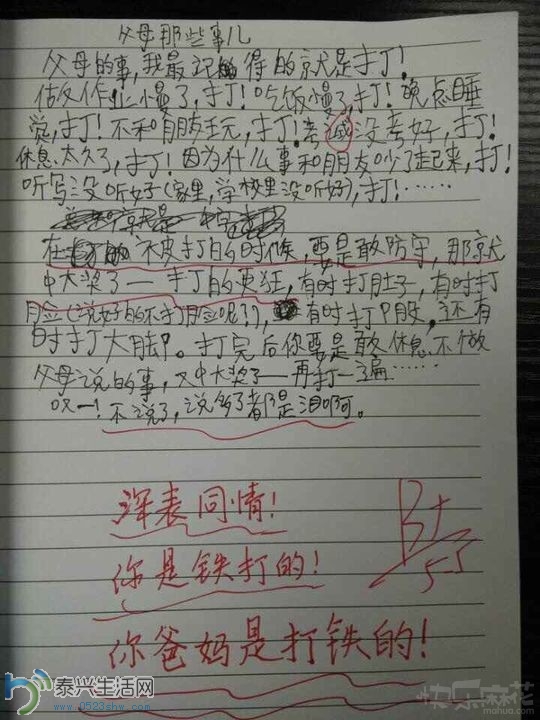 父母那些事儿
父母的事,我最记得的就是打!
做作业慢了,打!吃饭慢了,打!晚点睡
觉,打!不和朋友玩,打!考试没考好,打!
休息太久了,打!因为什么事和朋友吵了起来,打!
听写没听好(家里,学校里没听好),打!……
在被打的时候,要是敢防守,那就
中大奖了—打的更狂,有时打肚子,有时打
脸(说好的不打脸呢??),有时打屁股,还有
时打大脚。打完后你要是敢休息不做
父母说的事,又中大奖了—再打一遍……
哎—!不说了,说多了都是泪啊。
深表同情!
你是铁打的!
你爸妈是打铁的!
B+
5.5
泰兴生活网
www.0523shw.com
快乐麻花
mahua.com